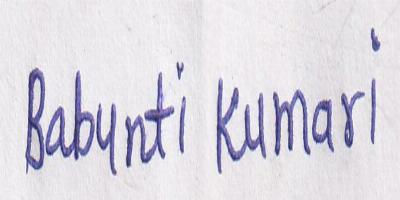 Babynti Kumari